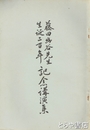 藤田幽谷先生
生誕二百年
記念講演集